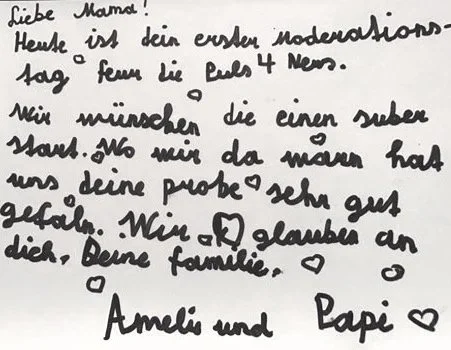 Liebe Mama!
Heute ist dein erster Moderations-
tag feur die Puls 4 News.
Wir münschen die einen suber
start. Wo mir da marn hat
uns deine probe sehr gut
gefaln. Wir glauben an
dich. Deine familie.
Amelie und Papi